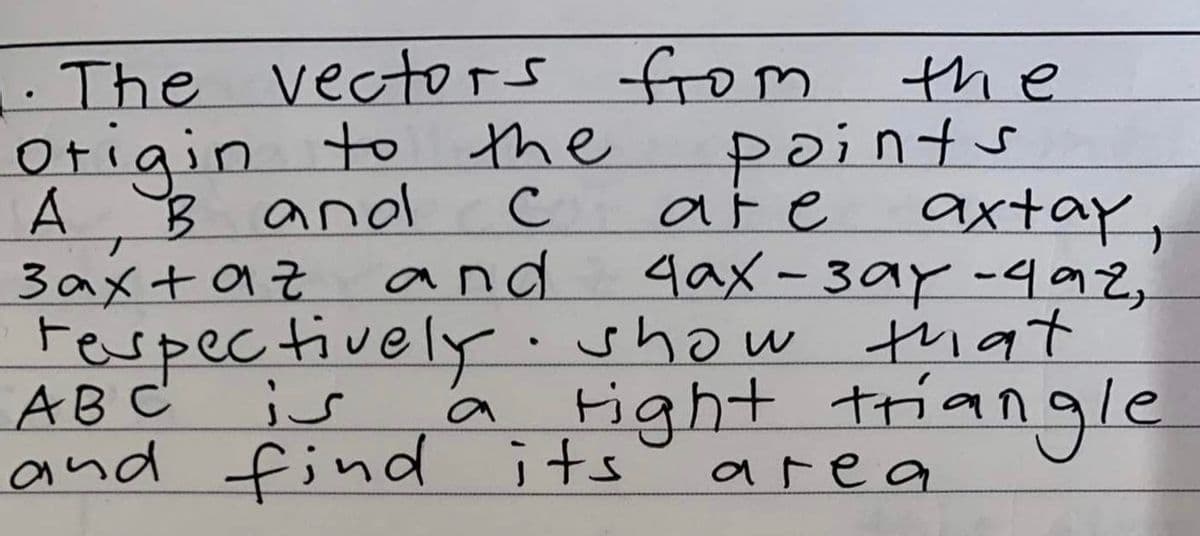 . The vectors from the
origin to the points
A, B and C are ax+ay,
3ax+az and 4ax-3ay-4az,
respectively. show that
ABC is a right triangle
and find its area